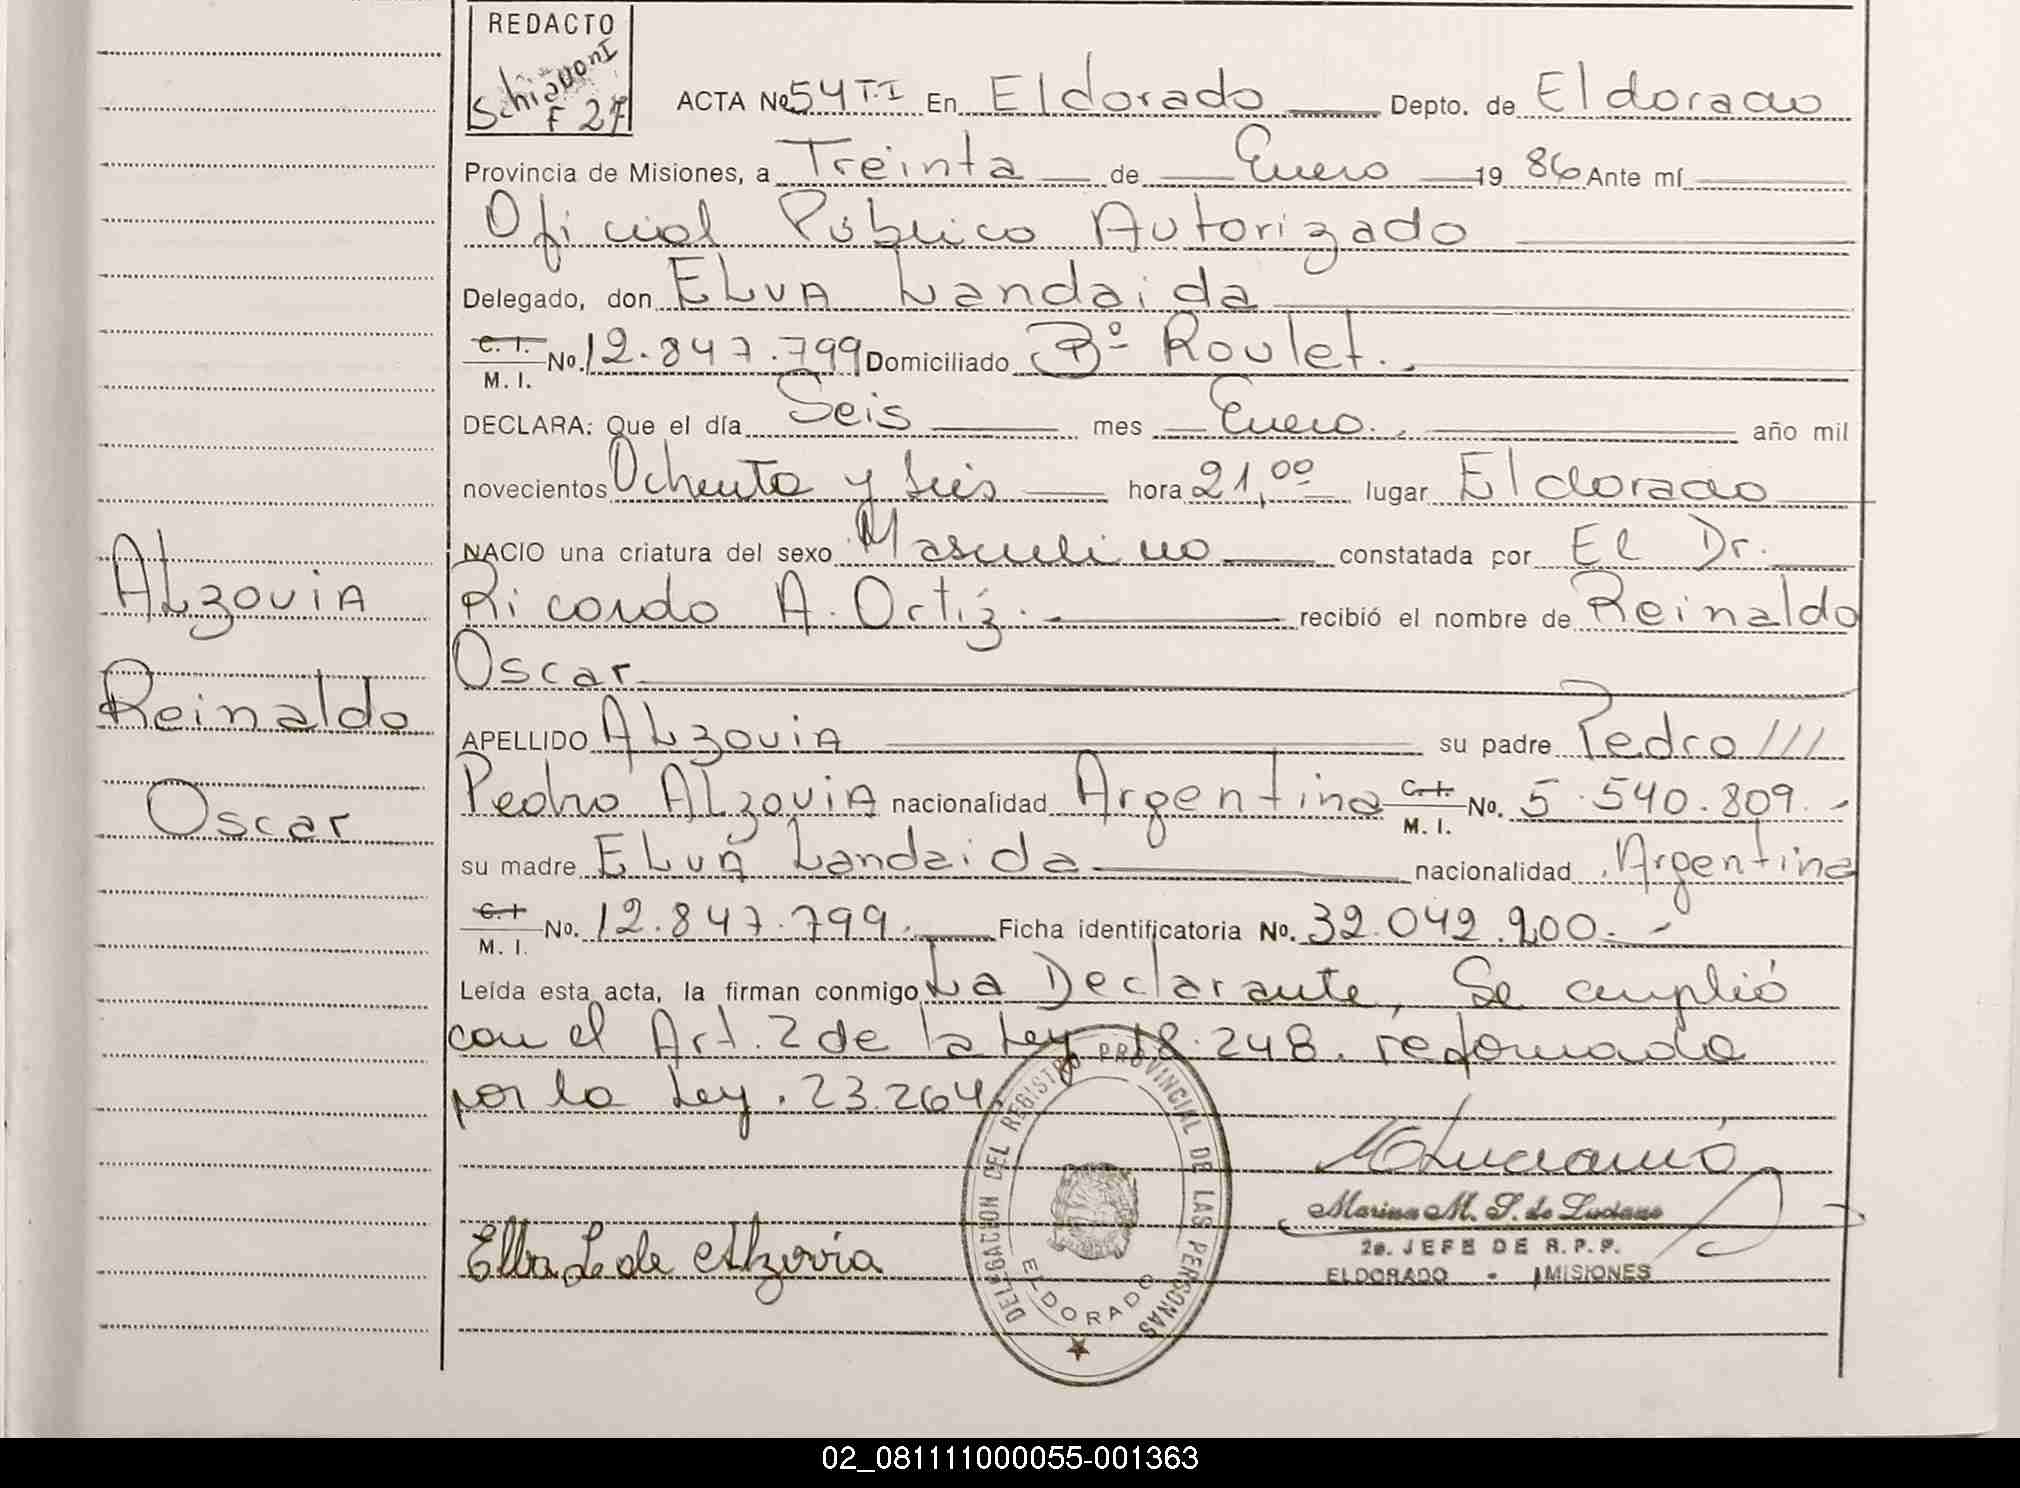 REDACTO
Schiavoni
F 27
ACTA No 54 T.I En Eldorado Depto. de Eldorado
Provincia de Misiones, a Treinta de Enero 19 86 Ante mí
Oficial Público Autorizado
Delegado, don ELVA Landaida
C. I. / M. I. No. 12.847.799 Domiciliado Bº Roulet.
DECLARA: Que el día Seis mes Enero. año mil
novecientos Ochenta y Seis hora 21,00 lugar Eldorado
NACIO una criatura del sexo Masculino constatada por El Dr.
Ricardo A. Ortíz. recibió el nombre de Reinaldo
Oscar
APELLIDO ALzovia su padre Pedro ///
Pedro ALzovia nacionalidad Argentina C. I. / M. I. No. 5.540.809.-
su madre ELva Landaida nacionalidad Argentina
C. I / M. I. No. 12.847.799. Ficha identificatoria No. 32.042.200.-
Leída esta acta, la firman conmigo La Declarante, Se cumplió
con el Art. 2 de la Ley 18.248. reformada
por la Ley. 23.264.
ALzovia
Reinaldo
Oscar
Elba L de Alzovia
DELEGACION DEL REGISTRO PROVINCIAL DE LAS PERSONAS
ELDORADO
Marina M. S. de Luciano
2a. JEFE DE R. P. P.
ELDORADO - MISIONES
02_081111000055-001363